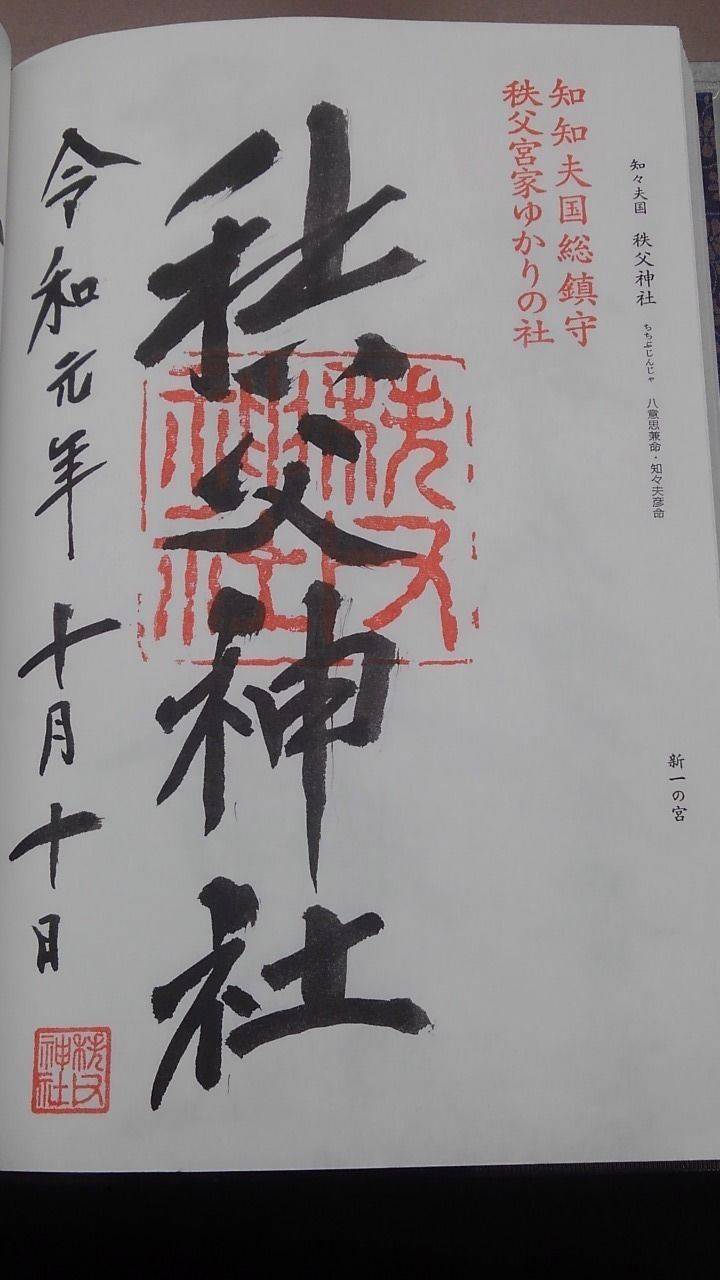 知々夫国　秩父神社　ちちぶじんじゃ　八意思兼命・知々夫彦命
新一の宮
知知夫国総鎮守
秩父宮家ゆかりの社
秩父神社
秩父
神社
令和元年 十月十日
秩父
神社